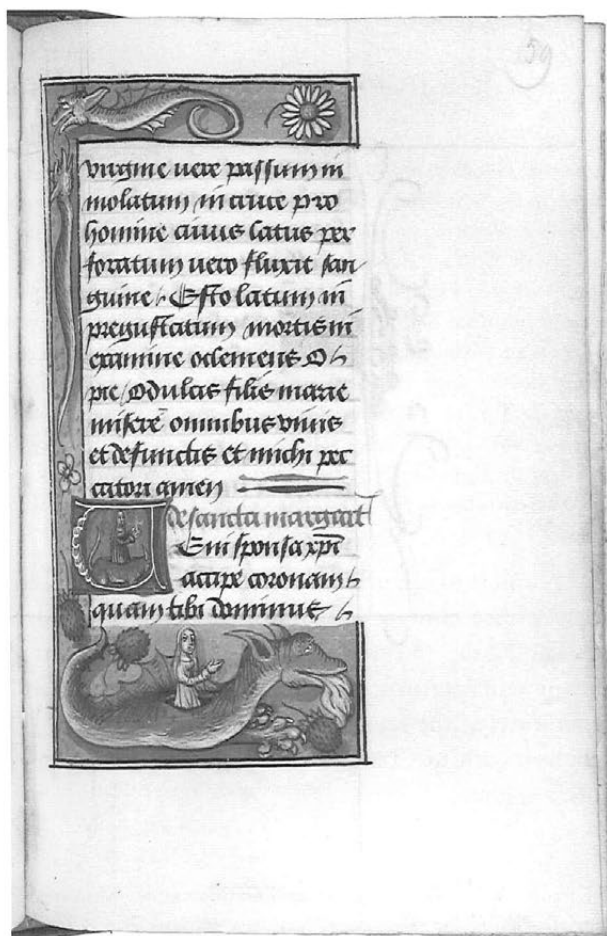 59
virgine vere passum in
molatum in cruce pro
homine cuius latus per
foratum vero fluxit san
guine Esto latum in
pregustatum mortis in
examine o clemens O
pie O dulcis filis marie
misere omnibus vivis
et defunctis et michi pec
catori amen
de sancta margeat
Veni sponsa xpi
accipe coronam
quam tibi dominus